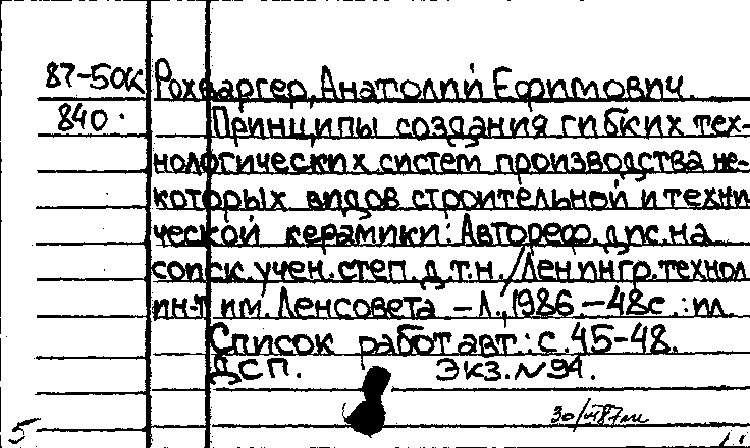 87-50к Рохваргер, Анатолий Ефимович.
840. Принципы создания гибких тех-
нологических систем производства не-
которых видов строительной и техни
ческой керамики: Автореф. дис. на
соиск. учен. степ. д.т.н. / Ленингр. технол
ин-т им. Ленсовета – Л., 1986. – 48с.: ил.
Список работ авт.: с. 45-48.
ДСП. Экз. N 94.
5